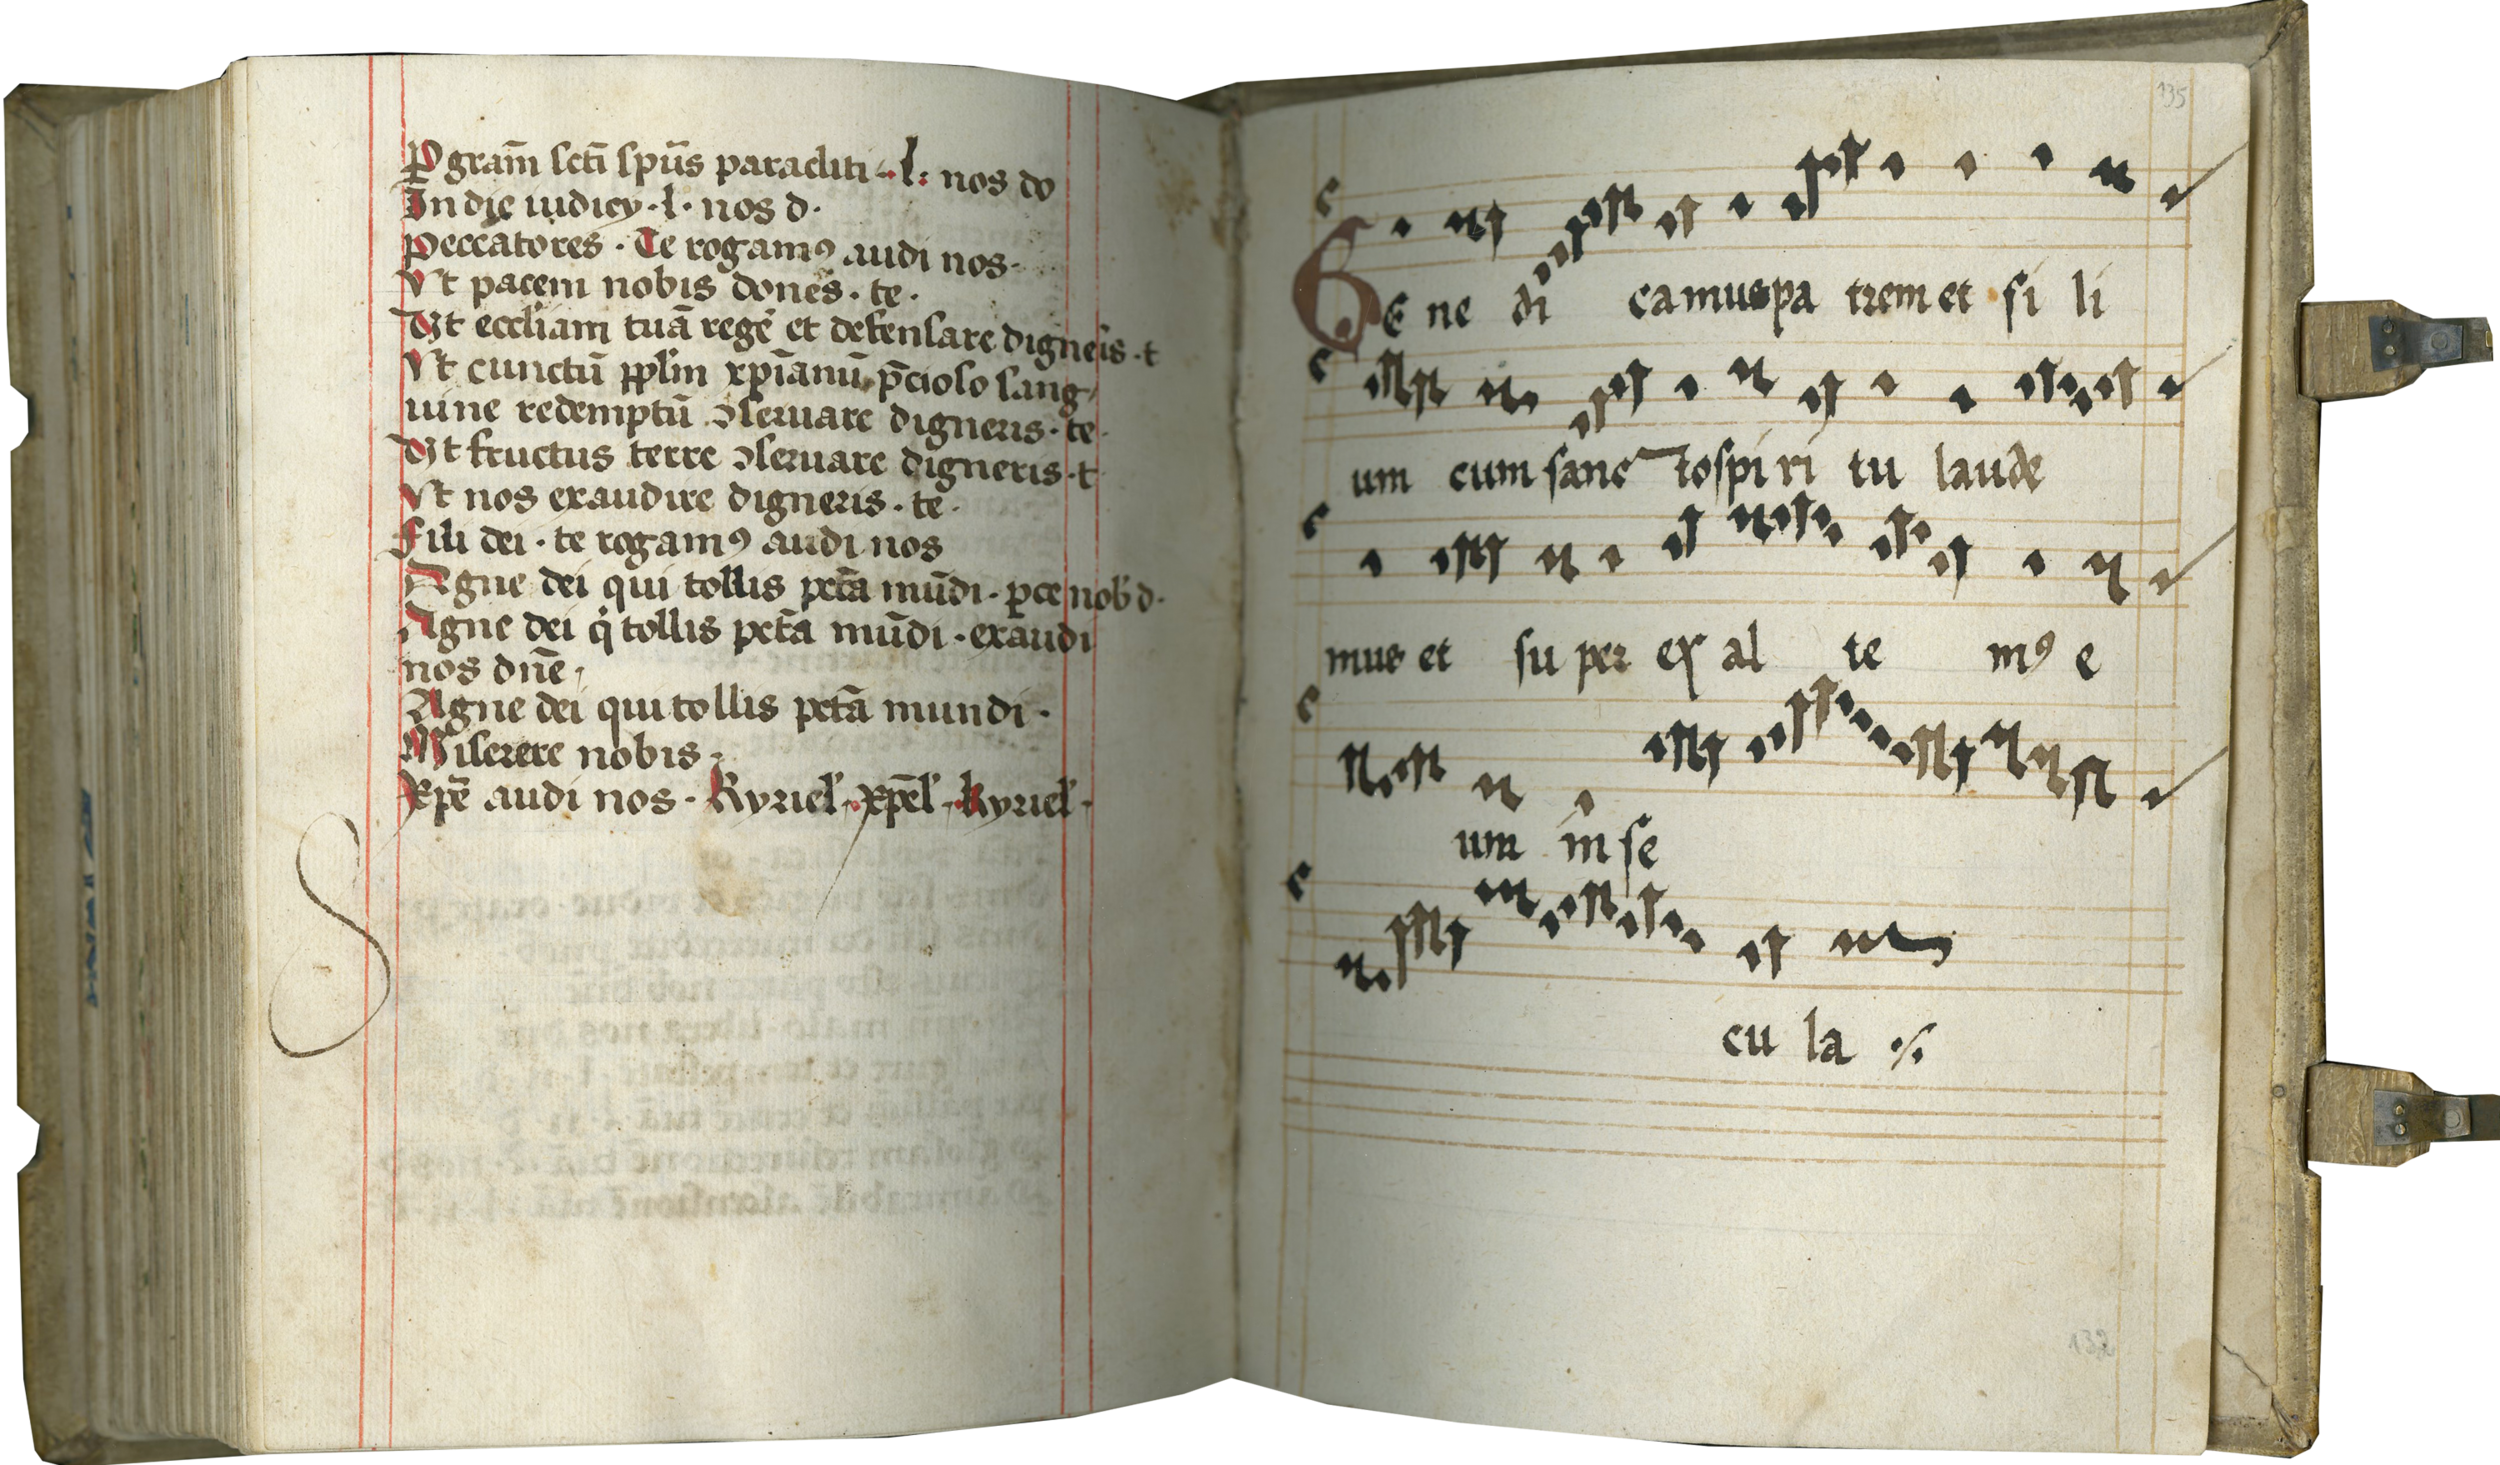 P gram̄ sctī spūs paracliti · l: nos do
In die iudicy · l · nos d ·
Peccatores · Te rogamꝰ audi nos ·
Vt pacem nobis dones · te ·
Vt eccliam tuā regē et defensare digneris · t
Vt cunctū pplm xpīanū p̄cioso sang
uine redemptū ꝯseruare digneris · te ·
Vt fructus terre ꝯseruare digneris · t
Vt nos exaudire digneris · te ·
Fili dei · te rogamꝰ audi nos
Agne dei qui tollis pctā mūdi · pce nob d ·
Agne dei q̇ tollis pctā mūdi · exaudi
nos dn̄e
Agne dei qui tollis pctā mundi ·
Miserere nobis
Xpē audi nos · Kyriel · xpēl · kyriel ·
135
BE ne di camus pa trem et fi li
um cum sanc to spi ri tu laude
mus et su per ex al te mꝰ e
um in se
cu la
132